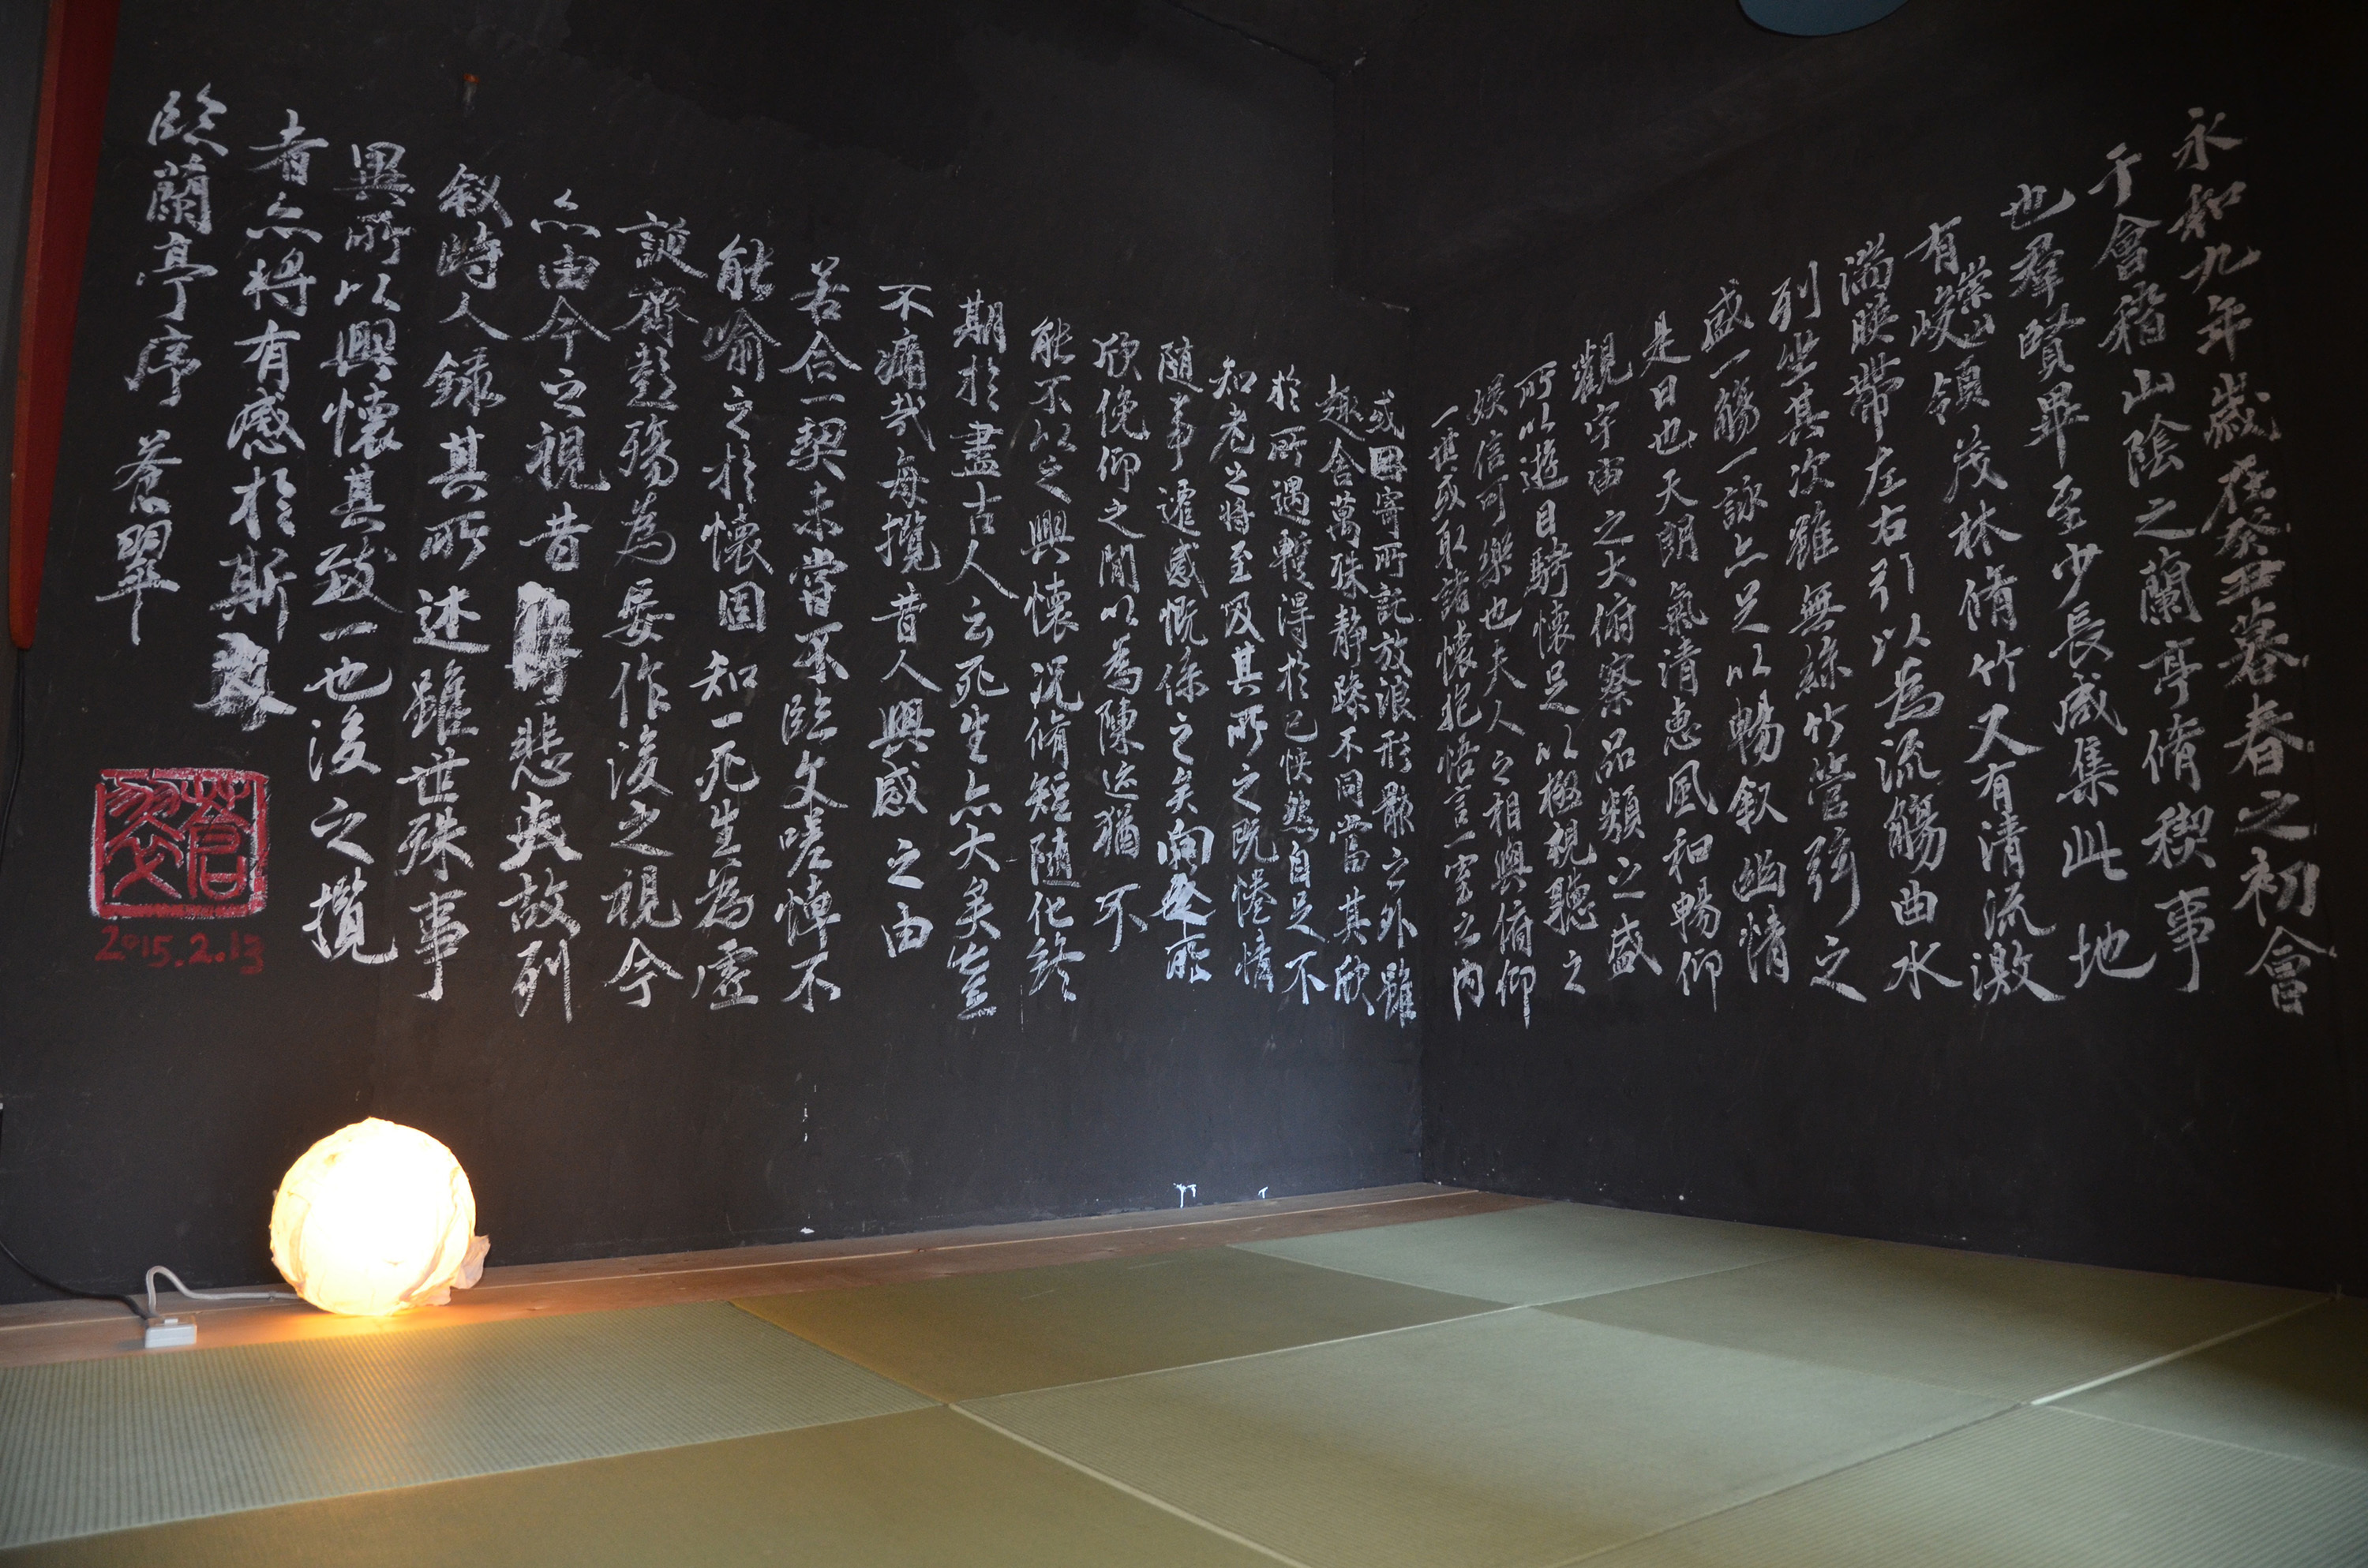 永和九年歲在癸丑暮春之初會
于會稽山陰之蘭亭脩稧事
也羣賢畢至少長咸集此地
有崇山峻領茂林脩竹又有清流激
湍暎帶左右引以為流觴曲水
列坐其次雖無絲竹管弦之
盛一觴一詠亦足以暢叙幽情
是日也天朗氣清惠風和暢仰
觀宇宙之大俯察品類之盛
所以遊目騁懷足以極視聽之
娛信可樂也夫人之相與俯仰
一世或取諸懷抱悟言一室之內
或因寄所託放浪形骸之外雖
趣舍萬殊靜躁不同當其欣
於所遇蹔得於己怏然自足不
知老之將至及其所之既惓情
隨事遷感慨係之矣向之所
欣俛仰之閒以為陳迹猶不
能不以之興懷況脩短隨化終
期於盡古人云死生亦大矣豈
不痛哉每攬昔人興感之由
若合一契未嘗不臨文嗟悼不
能喻之於懷固知一死生為虛
誕齊彭殤為妄作後之視今
亦由今之視昔悲夫故列
叙時人錄其所述雖世殊事
異所以興懷其致一也後之攬
者亦將有感於斯文
臨蘭亭序 蒼翠
蒼翠
2015.2.13